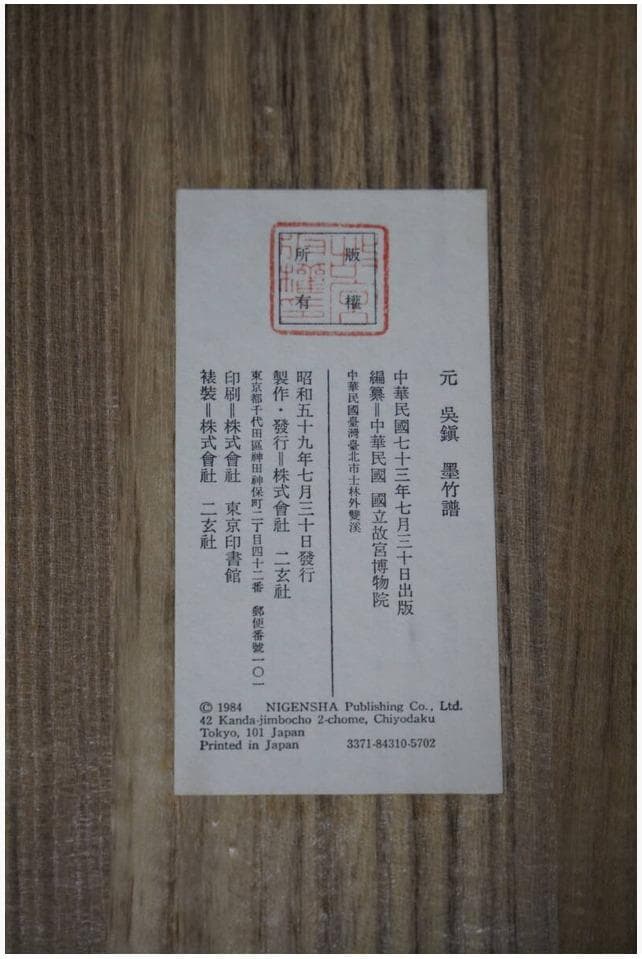 版權
所有
元　吳鎮　墨竹譜
中華民國七十三年七月三十日出版
編纂＝中華民國　國立故宮博物院
中華民國臺灣臺北市士林外雙溪
昭和五十九年七月三十日發行
製作・發行＝株式會社　二玄社
東京都千代田區神田神保町二丁目四十二番　郵便番號一〇一
印刷＝株式會社　東京印書館
裱裝＝株式會社　二玄社
© 1984 NIGENSHA Publishing Co., Ltd.
42 Kanda-jimbocho 2-chome, Chiyodaku
Tokyo, 101 Japan
Printed in Japan 3371-84310-5702